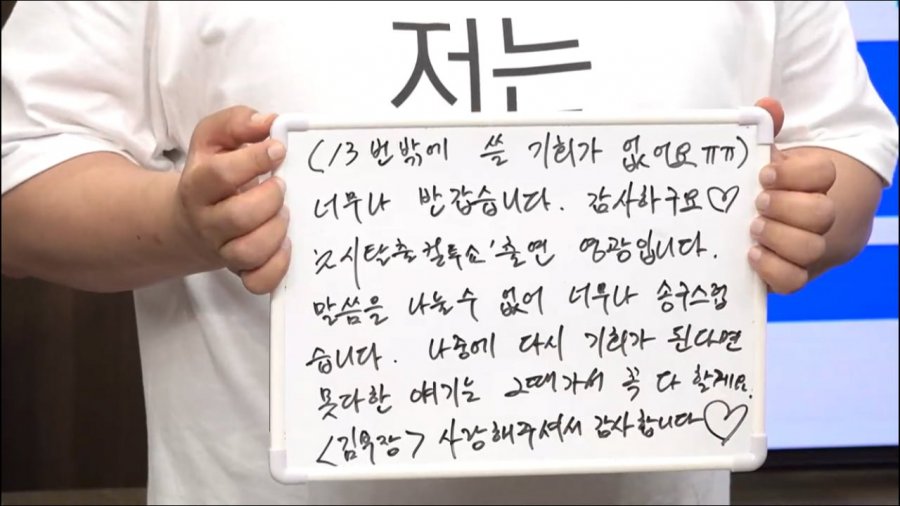 저는
(13번밖에 쓸 기회가 없어요 ㅠㅠ)
너무나 반갑습니다. 감사하구요♡
'2시탈출컬투쇼' 출연 영광입니다.
말씀을 나눌 수 없어 너무나 송구스럽
습니다. 나중에 다시 기회가 된다면
못다한 얘기는 그때가서 꼭 다 할게요.
<김묵장> 사랑해주셔서 감사합니다♡